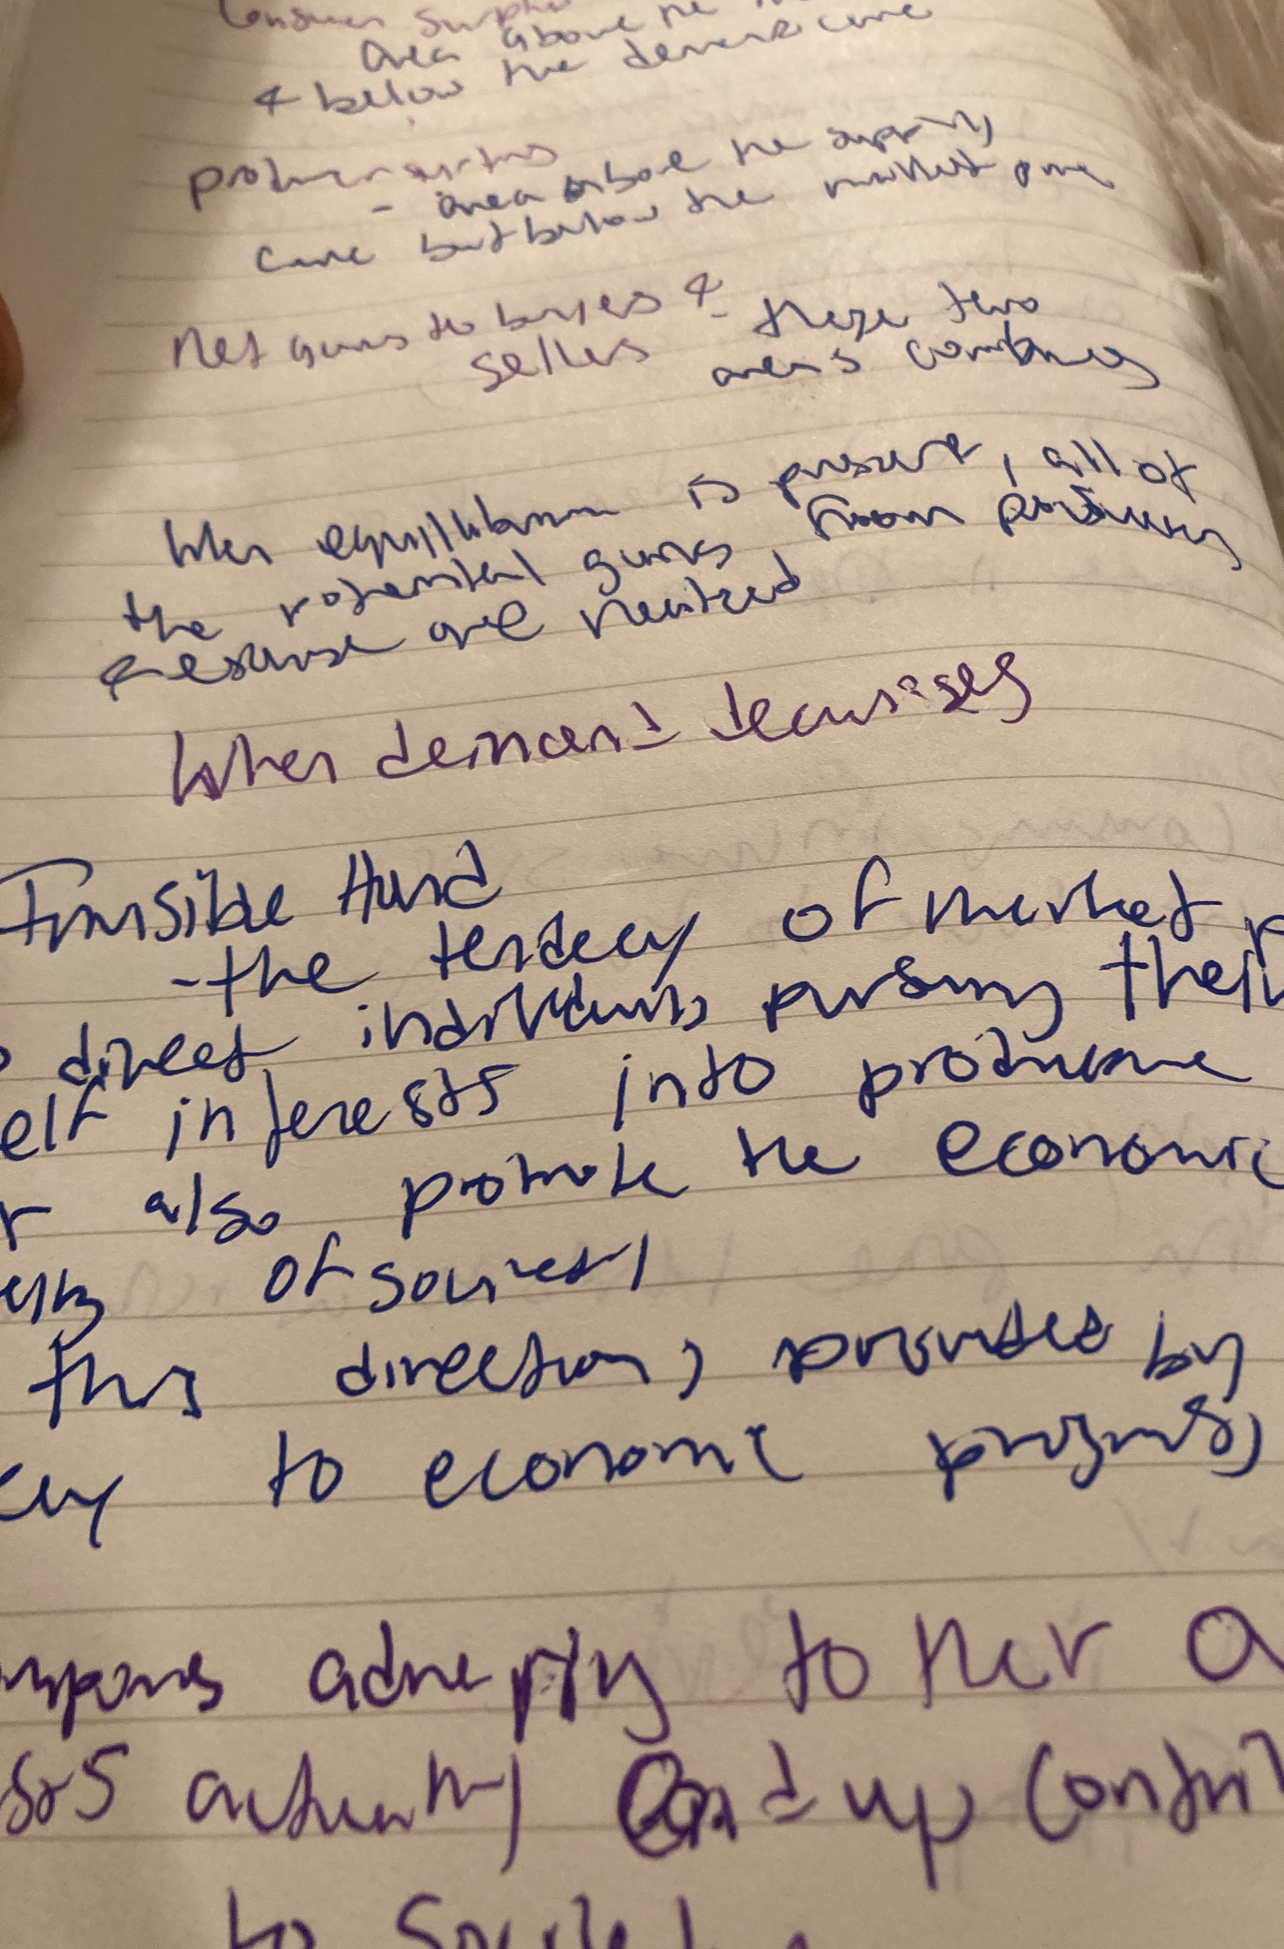 Consumer surplus
area above the
& below the demand curve
producer surplus
- area above the supply
curve but below the market price
Net gains to buyers &
sellers
- these two
areas combined
When equilibrium is present, all of
the potential gains from production
& exchange are realized
When demand decreases
Invisible Hand
- the tendecy of market
direct individuals pursuing their
elf interests into productive
also promote the economic
of society
this direction, provided by
to economic progress,
to her a
actually end up contri
to society